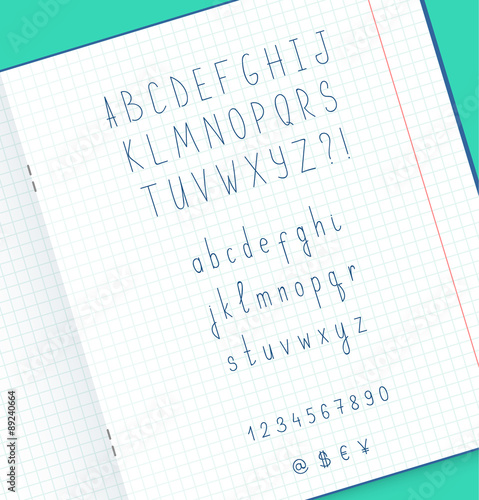 ABCDEFGHIJ
KLMNOPQRS
TUVWXYZ?!
abcdefghi
jklmnopqr
stuvwxyz
1234567890
@ $ € ¥
Adobe Stock | #89240664